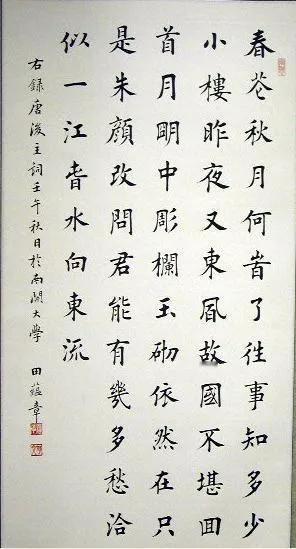 春花秋月何旹了往事知多少
小樓昨夜又東凮故國不堪囬
首月眀中彫欄玉砌依然在只
是朱顔改問君能有幾多愁洽
似一江旾水向東流
右録唐後主詞壬午秋日於南開大学 田蕴章